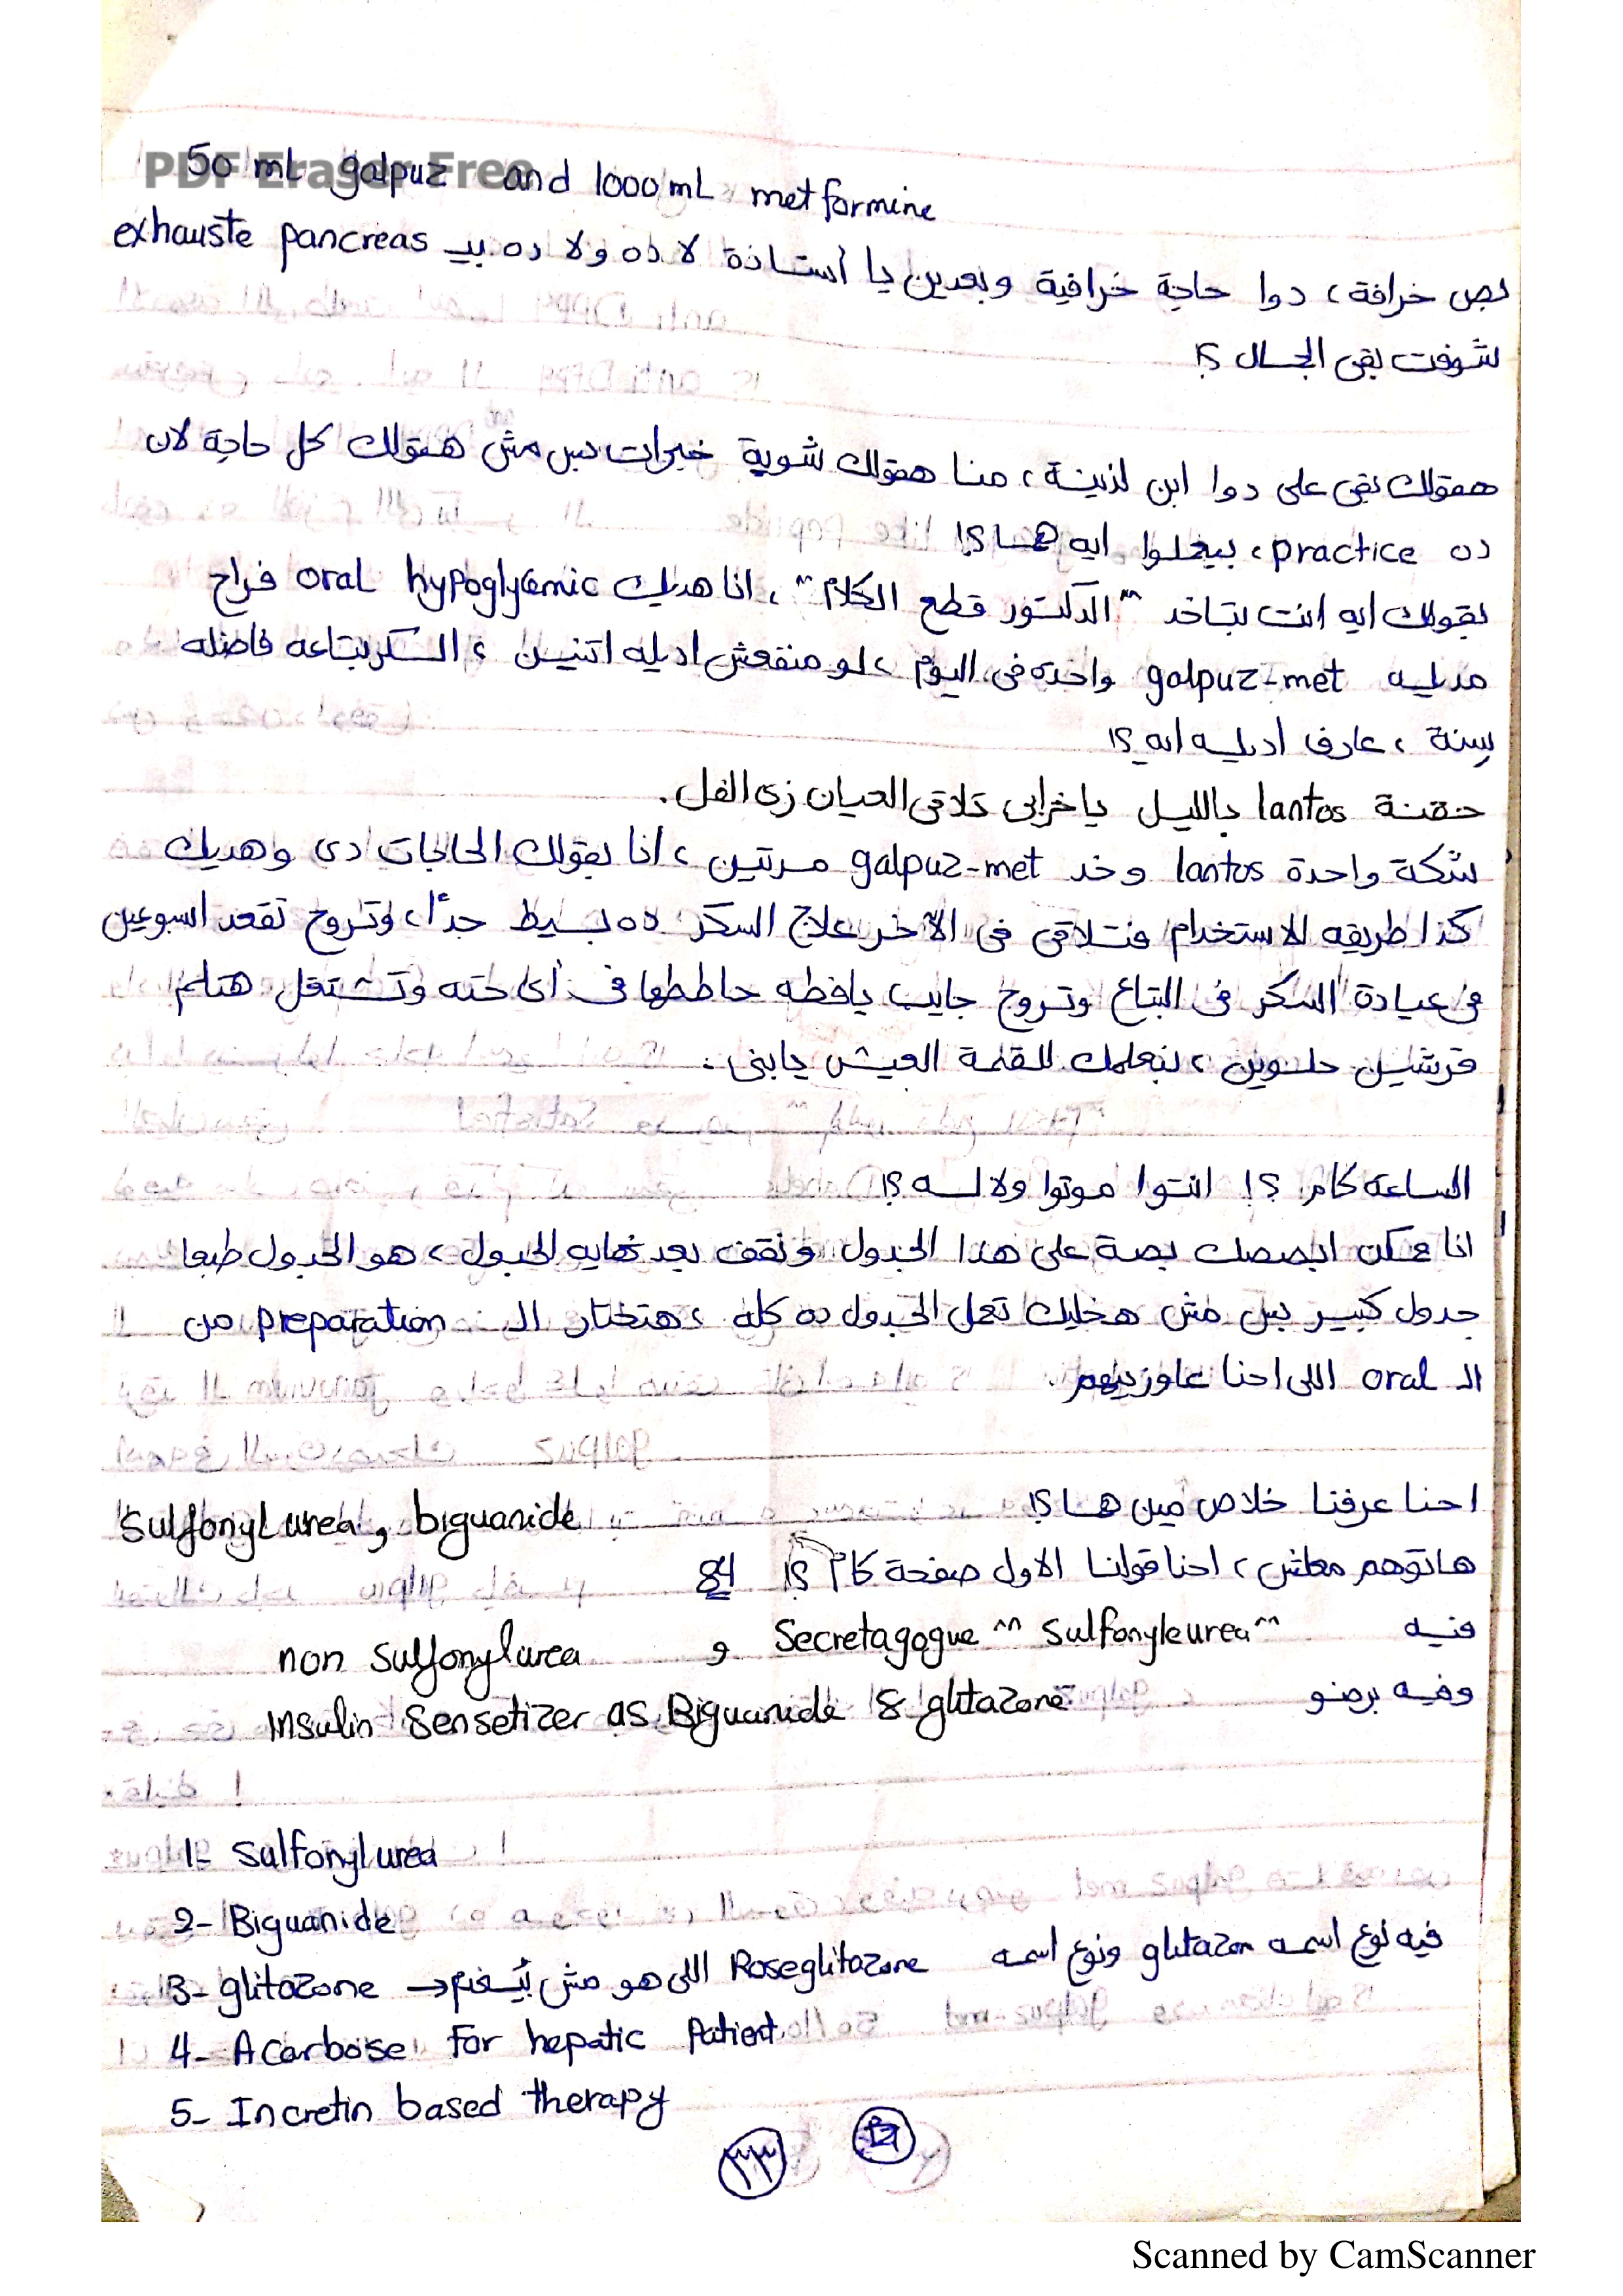 PDF Eraser Free
50 mL galpuz and 1000 mL metformine
بص خرافة، دوا حاجة خرافية وبعدين يا أستاذة لا ده ولا ده بيـ exhauste pancreas
شوفت بقى الجمال ؟!
همقولك بقى على دوا ابن لذينة، منا همقولك شوية خبرات بس مش همقولك كل حاجة لان
ده practice، بيعملوا ايه هـا ؟!
بقولك ايه انت بتاخد "الدكتور قطع الكلام"، انا هديك oral hypoglycemic فراح
مديله galpuz-met واحده فى اليوم، لو منفعش اديله اتنين، السكر بتاعه فاضله
سنة، عارف اديله ايه ؟!
حقنة lantos بالليل ياخرابى تلاقى العيان زى الفل.
شكة واحدة lantus وخد galpuz-met مرتين، انا بقولك الحاجات دى وهديك
كذا طريقه للاستخدام فتلاقى فى الآخر علاج السكر ده بسيط جدًا، وتروح تقعد اسبوعين
فى عيادة السكر فى البتاع وتروح جايب يافطه حاططها فى أى حته وتشتغل هتلم
قرشين حلوين، بنعلمك للقمة العيش يابنى.
الساعة كام ؟! انتوا موتوا ولا لسه ؟!
انا ممكن ابصصك بصة على هذا الجدول ونقف بعد نهايه الجدول، هو الجدول طبعا
جدول كبير بس مش هخليك تعمل الجدول ده كله، هتختار الـ preparation من
الـ oral اللى احنا عاوزينهم.
احنا عرفنا خلاص مين هـا ؟! Sulfonylurea و biguanide
هاتوهم معلش، احنا قولنا الاول صفحة كام ؟! 48
فيه Secretagogue "Sulfonyleurea" و non sulfonylurea
وفيه برضو Insulin Sensetizer as Biguanide & glitazone
1- Sulfonylurea
2- Biguanide
3- glitazone → فيه نوع اسمه glitazon ونوع اسمه Roseglitazone اللى هو مش
4- Acarbose For hepatic Patient
5- Incretin based therapy
٣٣
Scanned by CamScanner